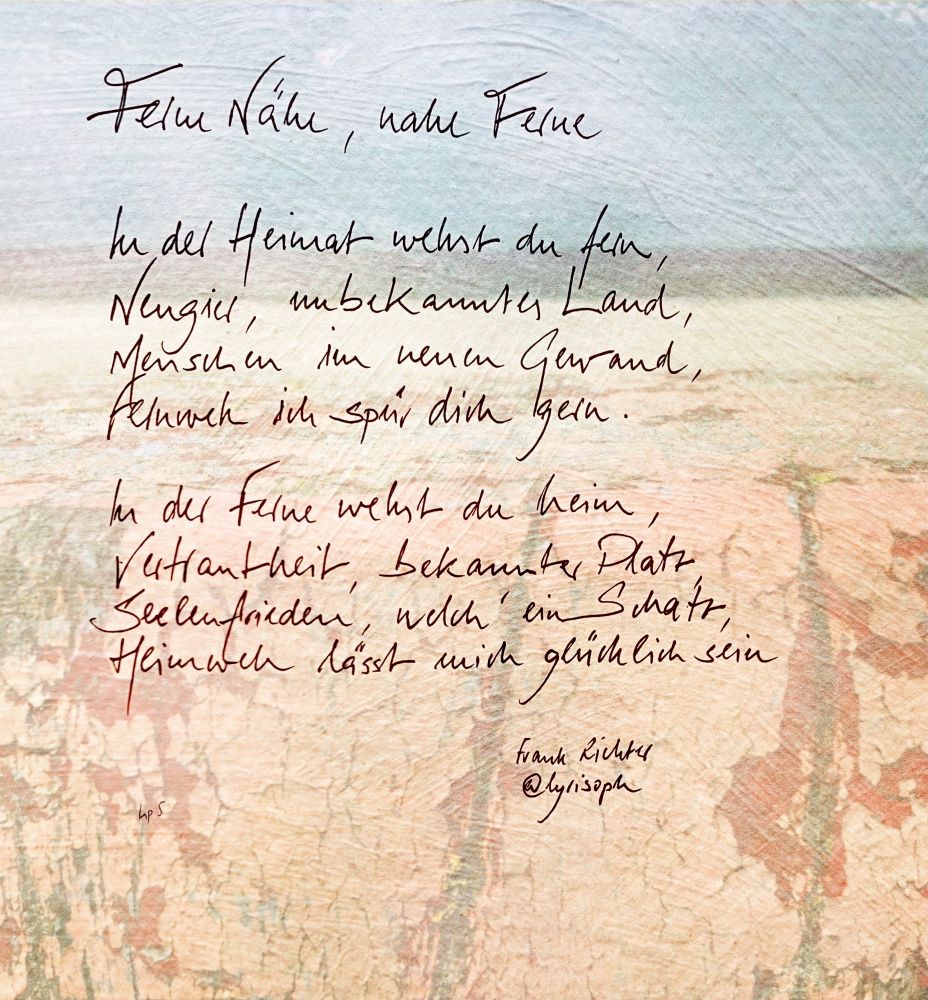 Ferne Nähe, nahe Ferne
In der Heimat wehst du fern,
Neugier, unbekanntes Land,
Menschen im neuen Gewand,
Fernweh ich spür dich gern.
In der Ferne wehst du heim,
Vertrautheit, bekannter Platz,
Seelenfrieden, welch' ein Schatz,
Heimweh lässt mich glücklich sein
Frank Richter
@lyrisoph
hpS